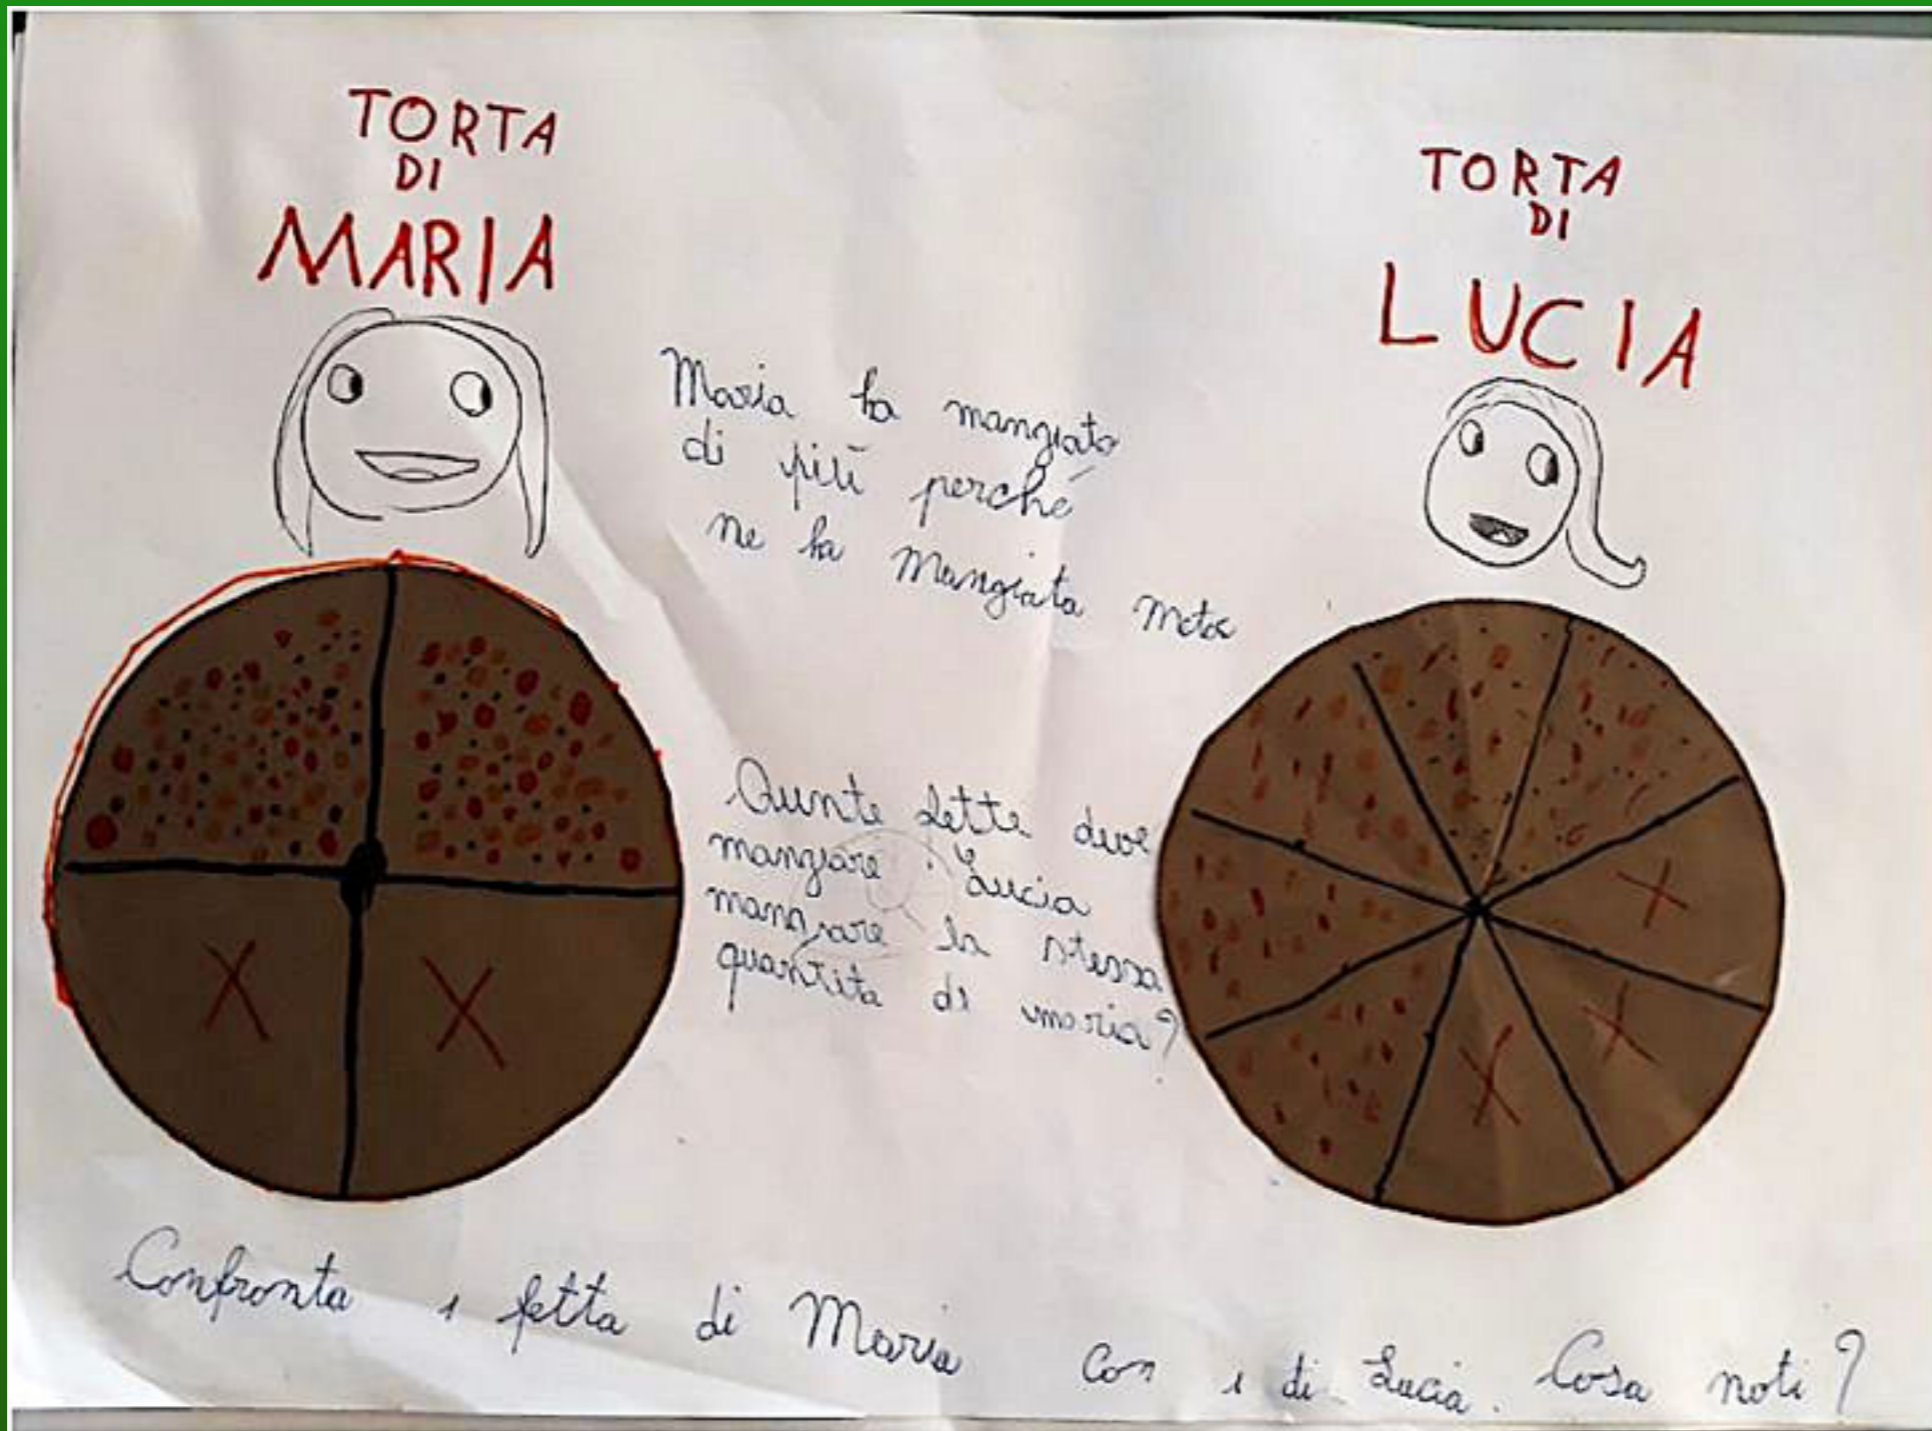 TORTA
DI
MARIA
TORTA
DI
LUCIA
Maria ha mangiato
di più perché
ne ha mangiata metà
Qunte fette deve
mangiare Lucia
mangiare la stessa
quantita di maria?
Confronta 1 fetta di Maria con 1 di Lucia. Cosa noti?